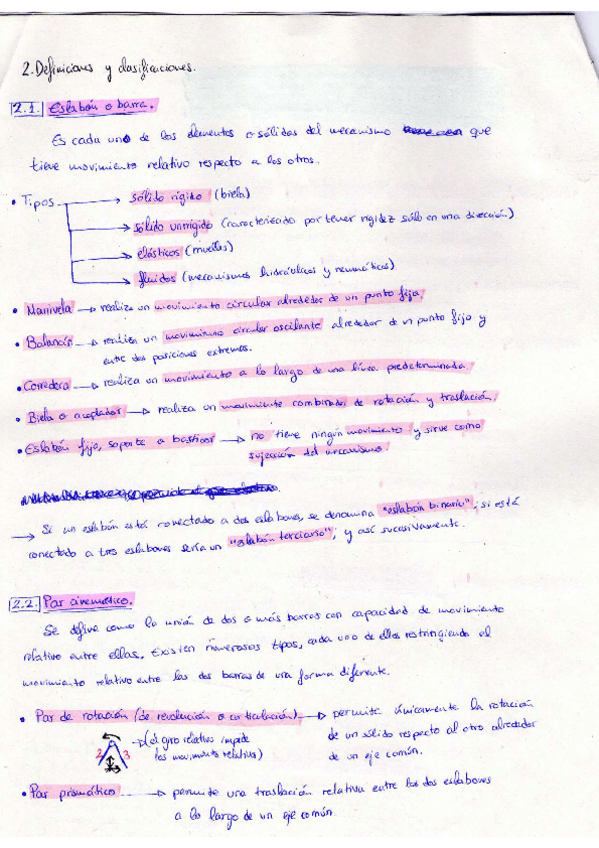 2. Definiciones y clasificaciones.
2.1. Eslabón o barra.
Es cada uno de los elementos o sólidos del mecanismo que
tiene movimiento relativo respecto a los otros.
• Tipos → sólido rígido (biela)
→ sólido unirrígido (caracterizado por tener rigidez sólo en una dirección)
→ elásticos (muelles)
→ fluidos (mecanismos hidráulicos y neumáticos)
• Manivela → realiza un movimiento circular alrededor de un punto fijo.
• Balancín → realiza un movimiento circular oscilante alrededor de un punto fijo y
entre dos posiciones extremos.
• Corredera → realiza un movimiento a lo largo de una línea predeterminada.
• Biela o acoplador → realiza un movimiento combinados de rotación y traslación.
• Eslabón fijo, soporte o bastidor → no tiene ningún movimiento y sirve como
sujección del mecanismo.
→ Si un eslabón está conectado a dos eslabones, se denomina "eslabón binario"; si está
conectado a tres eslabones sería un "eslabón terciario"; y así sucesivamente.
2.2. Par cinemático.
Se define como la unión de dos o más barras con capacidad de movimiento
relativo entre ellas. Existen numerosos tipos, cada uno de ellos restringiendo el
movimiento relativo entre las dos barras de una forma diferente.
• Par de rotación (de revolución o articulación) → permite únicamente la rotación
de un sólido respecto al otro alrededor
de un eje común.
→ (el giro relativo impide
los movimiento relativos)
2 3
• Par prismático → permite una traslación relativa entre los dos eslabones
a lo largo de un eje común.